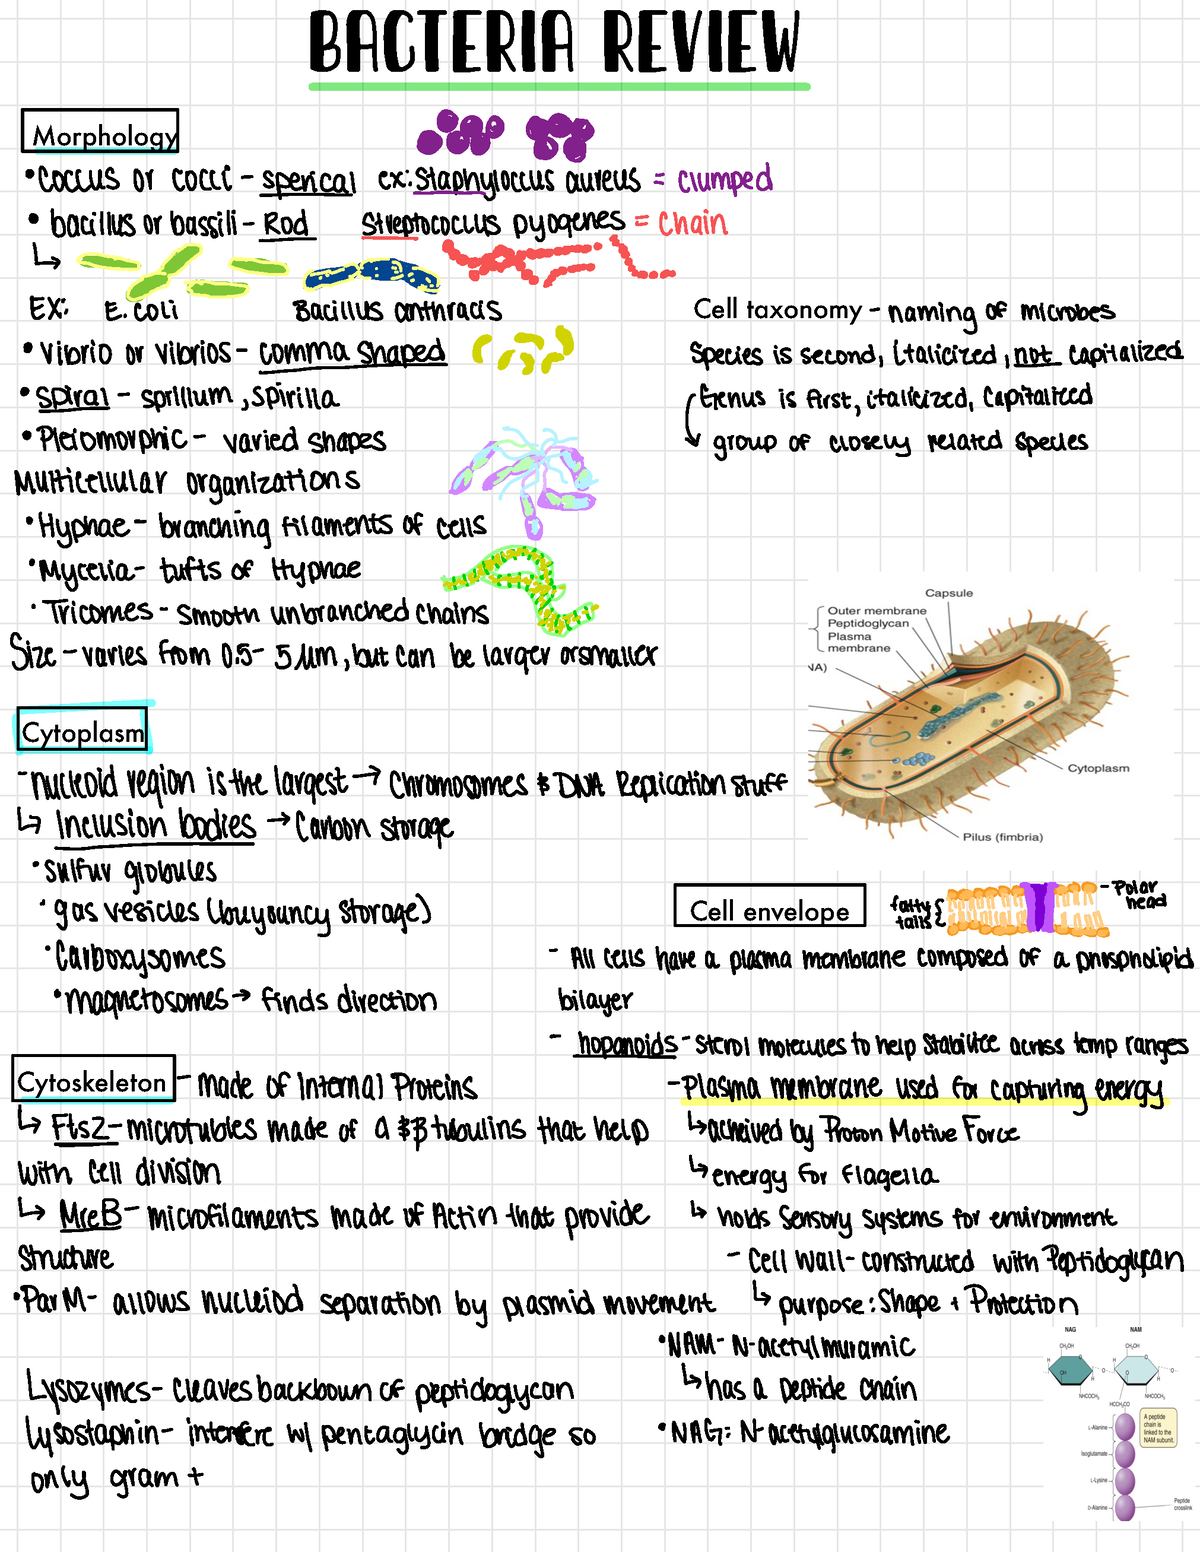 BACTERIA REVIEW
Morphology
•Coccus or cocci - sperical ex: Staphyloccus aureus = clumped
• bacillus or bassili - Rod Streptococcus pyogenes = Chain
↳
EX: E. coli Bacillus anthracis
• Vibrio or vibrios - comma shaped
• spiral - sprillum, spirilla
• Pleiomorphic - varied shapes
Multicellular organizations
• Hyphae - branching filaments of cells
• Mycelia - tufts of Hyphae
• Tricomes - smooth unbranched chains
Size - varies from 0.5 - 5 µm, but can be larger or smaller
Cell taxonomy - naming of microbes
Species is second, italicized, not capitalized
Genus is first, italicized, capitalized
↳ group of closely related species
Capsule
Outer membrane
Peptidoglycan
Plasma
membrane
NA)
Cytoplasm
Pilus (fimbria)
Cytoplasm
- nucleoid region is the largest → Chromosomes & DNA Replication stuff
↳ Inclusion bodies → Carbon storage
• Sulfur globules
• gas vesicles (buoyancy storage)
• Carboxysomes
• magnetosomes → finds direction
Cytoskeleton - made of Internal Proteins
↳ FtsZ - microtubles made of α & β tubulins that help
with cell division
↳ MreB - microfilaments made of Actin that provide
structure
• ParM - allows nucleiod separation by plasmid movement
Lysozymes - cleaves backbown of peptidoglycan
Lysostaphin - interfere w/ pentaglycin bridge so
only gram +
Cell envelope
fatty
tails
- Polar
head
- All cells have a plasma membrane composed of a phospholipid
bilayer
- hopanoids - sterol molecules to help stabilize across temp ranges
- Plasma membrane used for capturing energy
↳ acheived by Proton Motive Force
↳ energy for flagella
↳ holds sensory systems for environment
- Cell wall - constructed with Peptidoglycan
↳ purpose: Shape + Protection
• NAM - N-acetylmuramic
↳ has a peptide chain
• NAG: N-acetylglucosamine
NAG NAM
CH₂OH CH₂OH
H O H O
OH O O
H H
NHCOCH₃ NHCOCH₃
HCCH₃CO
L-Alanine
Isoglutamate
L-Lysine
D-Alanine
A peptide
chain is
linked to the
NAM subunit.
Peptide
crosslink